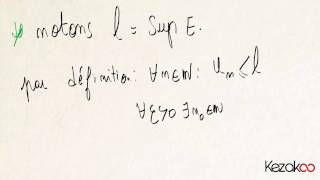 * notons l = Sup E.
par définition: ∀n∈ℕ: Uₙ ≤ l
∀ε>0 ∃n₀∈ℕ
Kezakoo